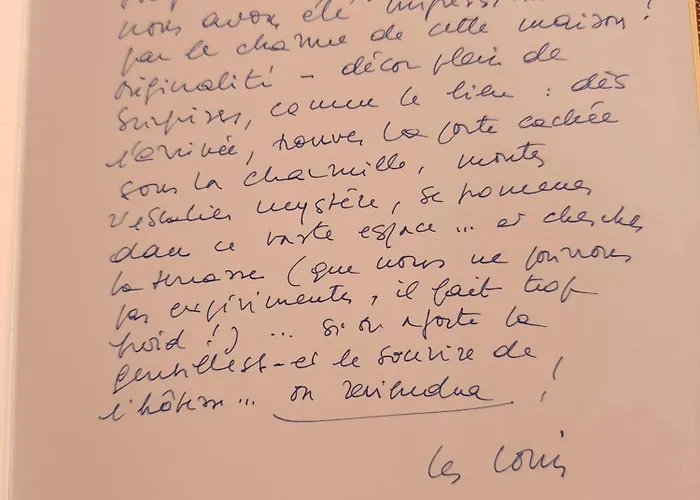 nous avons été impress
par le charme de cette maison !
originalité - décor plein de
surprises, comme le lieu : dès
l'arrivée, trouver la porte cachée
sous la charmille, monter
l'escalier mystère, se promener
dans ce vaste espace ... et chercher
la terrasse (que nous ne pouvons
pas expérimenter, il fait trop
froid !) ... si on ajoute la
gentillesse et le sourire de
l'hôtesse ... on reviendra !
Les